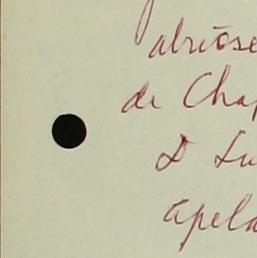 abriose
de Chap
D Lu
apela